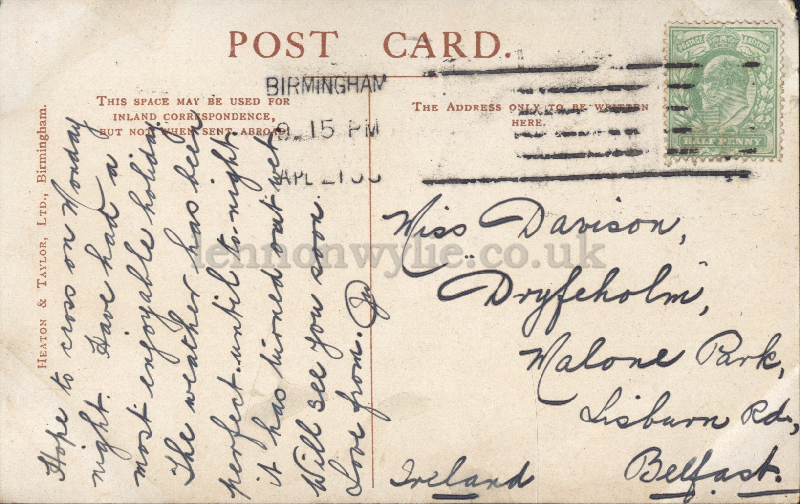 POST CARD.
BIRMINGHAM
15 PM
THIS SPACE MAY BE USED FOR
INLAND CORRESPONDENCE,
BUT NOT WHEN SENT ABROAD.
THE ADDRESS ONLY TO BE WRITTEN
HERE.
POSTAGE
HALF PENNY
HEATON & TAYLOR, LTD., Birmingham.
Hope to cross on Monday
night. Have had a
most enjoyable holiday.
The weather has been
perfect until to-night.
it has turned out wet
Will see you soon.
Love from.
Miss Davison,
"Dryfeholm",
Malone Park,
Lisburn Rd.,
Belfast.
Ireland
lennonwylie.co.uk